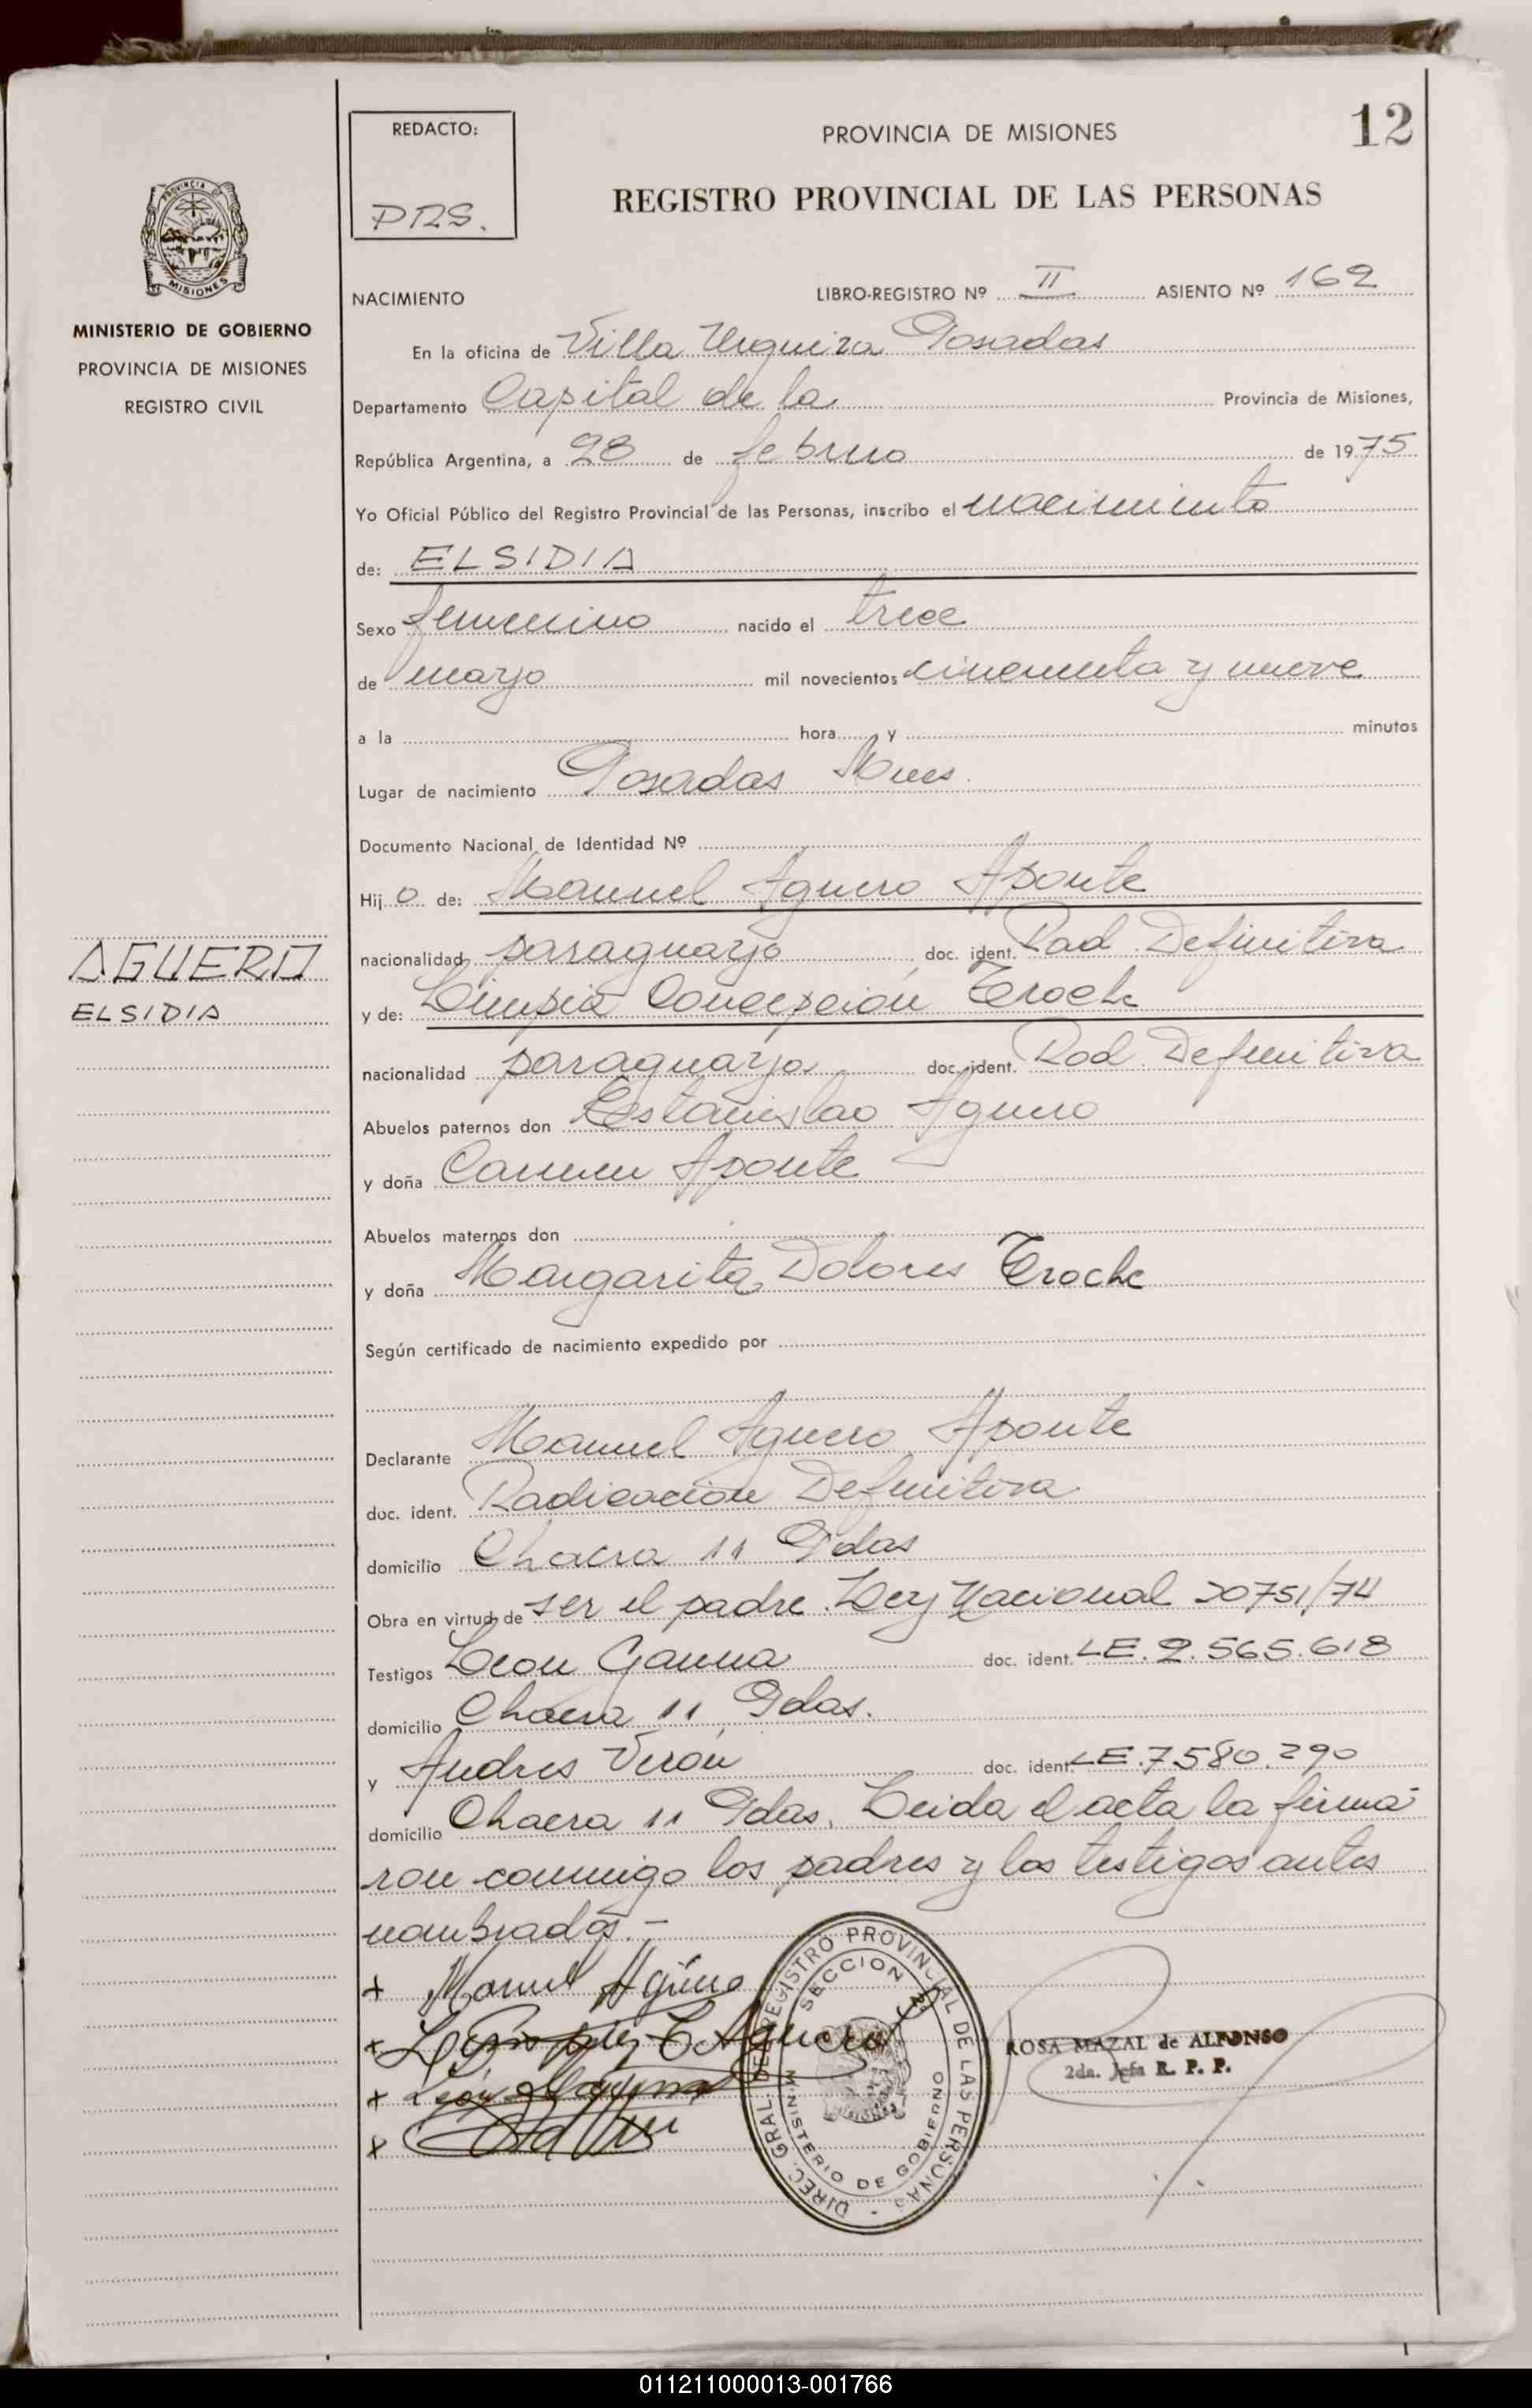 12
REDACTO:
PROVINCIA DE MISIONES
REGISTRO PROVINCIAL DE LAS PERSONAS
PROVINCIA
MISIONES
MINISTERIO DE GOBIERNO
PROVINCIA DE MISIONES
REGISTRO CIVIL
NACIMIENTO LIBRO-REGISTRO Nº II ASIENTO Nº 162
En la oficina de Villa Urquiza Posadas
Departamento Capital de la Provincia de Misiones,
República Argentina, a 28 de febrero de 1975
Yo Oficial Público del Registro Provincial de las Personas, inscribo el nacimiento
de: ELSIDIA
Sexo femenino nacido el trece
de mayo mil novecientos cincuenta y nueve
a la hora y minutos
Lugar de nacimiento Posadas Mnes.
Documento Nacional de Identidad Nº
Hij o de: Manuel Aguero Aponte
AGUERO
ELSIDIA
nacionalidad paraguayo doc. ident. Rad Definitiva
y de: Limpia Concepción Troche
nacionalidad paraguaya doc. ident. Rad Definitiva
Abuelos paternos don Estanislao Aguero
y doña Carmen Aponte
Abuelos maternos don
y doña Margarita Dolores Troche
Según certificado de nacimiento expedido por
Declarante Manuel Aguero Aponte
doc. ident. Radicación Definitiva
domicilio Chacra 11 Pdas
Obra en virtud de ser el padre. Ley Nacional 20751/74
Testigos Leon Gauna doc. ident. LE. 2.565.618
domicilio Chacra 11 Pdas.
y Andres Verón doc. ident. LE. 7580.290
domicilio Chacra 11 Pdas. Leida el acta la firma-
ron conmigo los padres y los testigos antes
nombrados.-
x Manuel Agüero
x C. Aguero
x León Gauna
x
DIREC. GRAL. DEL REGISTRO PROVINCIAL DE LAS PERSONAS
SECCION
MINISTERIO DE GOBIERNO
MISIONES
ROSA MAZAL de ALFONSO
2da. Jefa R. P. P.
011211000013-001766